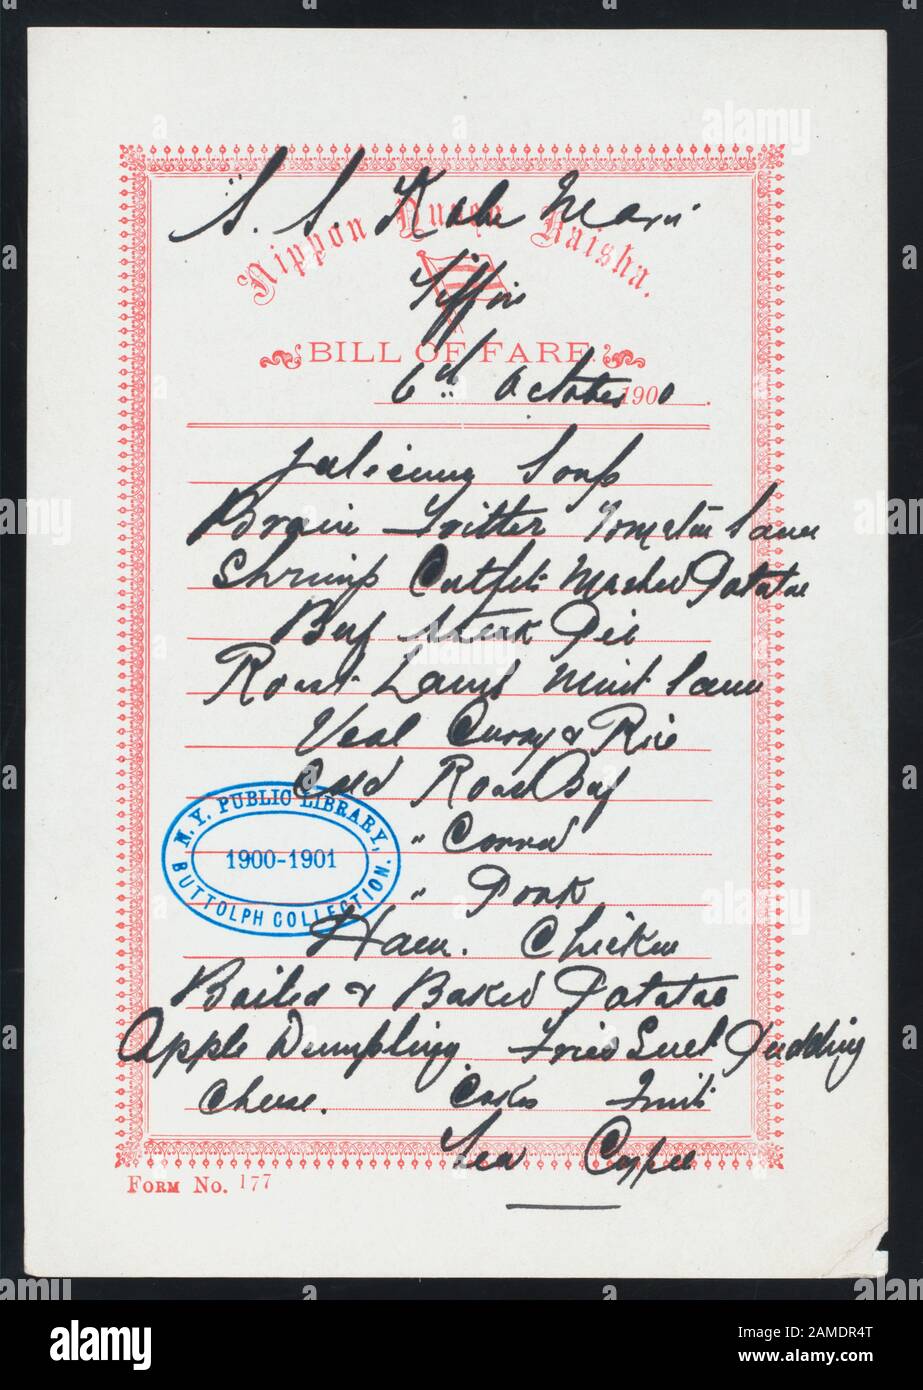 S. S. Kobe Maru
Nippon Yusen Kaisha.
Tiffin
BILL OF FARE.
6th October 1900.
Julienne Soup
Brain Fritter Tomatoe Sauce
Shrimp Cutlets Mashed Potatoe
Beef Steak Pie
Roast Lamb Mint Sauce
Veal Curry & Rice
Cold Roast Beef
" Corned
" Pork
Ham. Chicken
Boiled & Baked Potatoe
Apple Dumpling Fried Suet Pudding
Cheese. Cakes Fruit
Tea Coffee
N.Y. PUBLIC LIBRARY,
1900-1901
BUTTOLPH COLLECTION.
FORM NO. 177
alamy
Image ID: 2AMDR4T
www.alamy.com